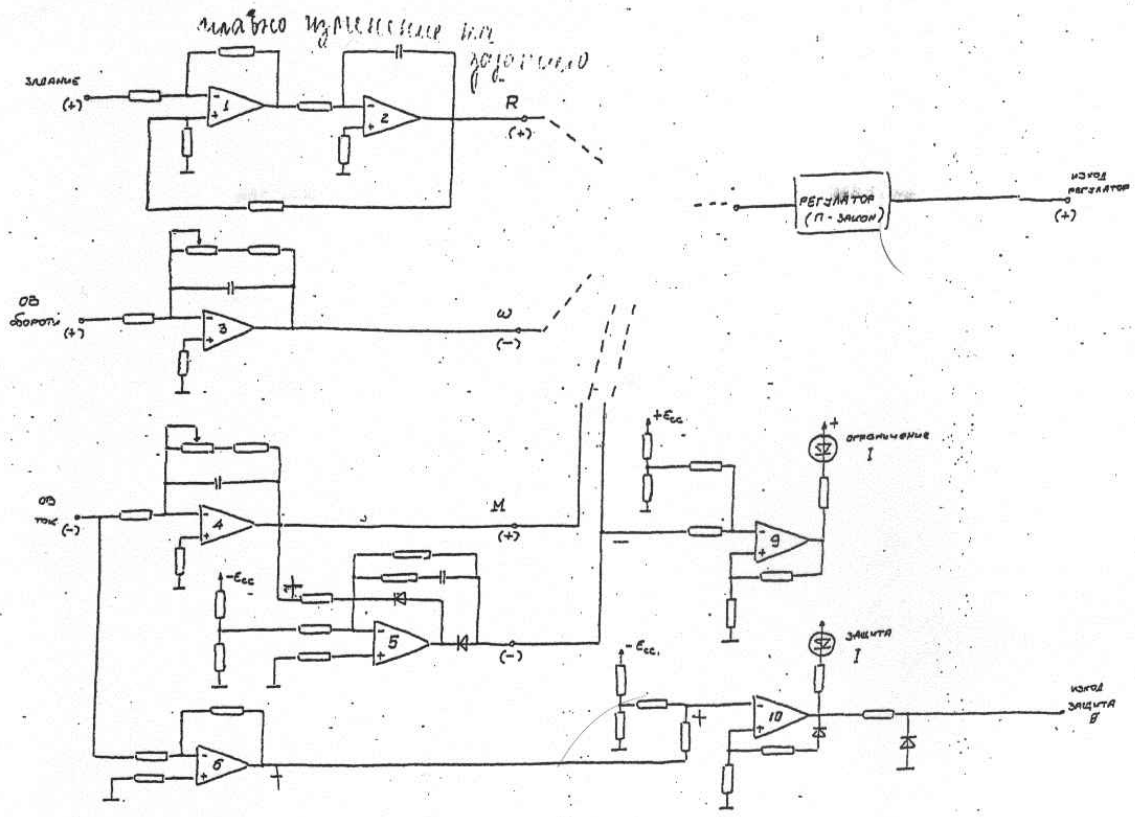 плавно изменение на
заданието
ЗАДАНИЕ
(+)
-
+
1
-
+
2
R
(+)
РЕГУЛАТОР
(П-ЗАКОН)
ИЗХОД
РЕГУЛАТОР
(+)
ОВ
ОБОРОТИ
(+)
-
+
3
ω
(-)
ОВ
ТОК
(-)
-
+
4
M
(+)
+Ecc
+
ОГРАНИЧЕНИЕ
I
-
-
+
9
-Ecc
+
-
+
5
(-)
-Ecc
ЗАЩИТА
I
+
-
+
10
ИЗХОД
ЗАЩИТА
-
+
6
+